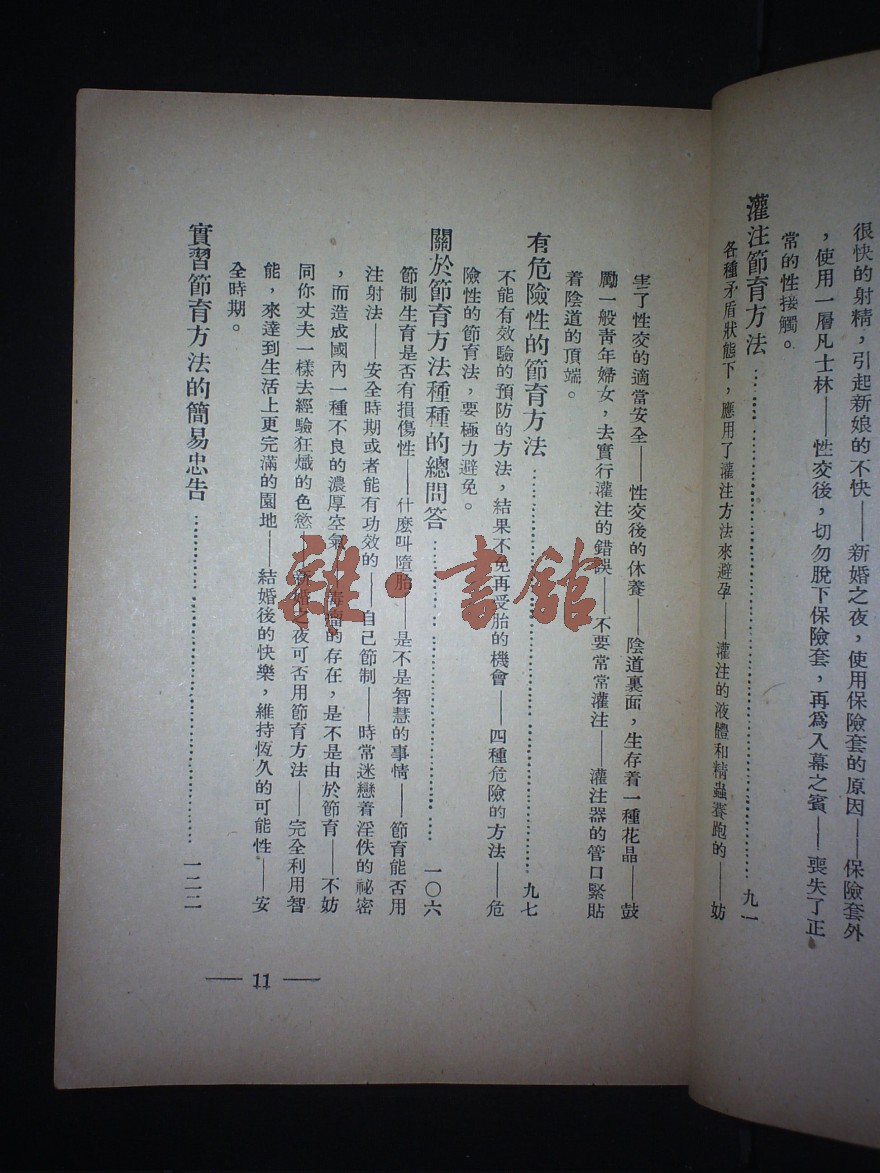 很快的射精，引起新娘的不快——新婚之夜，使用保險套的原因——保險套外
，使用一層凡士林——性交後，切勿脫下保險套，再爲入幕之賓——喪失了正
常的性接觸。
灌注節育方法……………………………………九一
各種矛盾狀態下，應用了灌注方法來避孕——灌注的液體和精蟲賽跑的——妨
害了性交的適當安全——性交後的休養——陰道裏面，生存着一種花晶——鼓
勵一般靑年婦女，去實行灌注的錯誤——不要常常灌注——灌注器的管口緊貼
着陰道的頂端。
有危險性的節育方法……………………………………九七
不能有效驗的預防的方法，結果不免再受胎的機會——四種危險的方法——危
險性的節育法，要極力避免。
關於節育方法種種的總問答……………………………………一〇六
節制生育是否有損傷性——什麽叫墮胎——是不是智慧的事情——節育能否用
注射法——安全時期或者能有功效的——自己節制——時常迷戀着淫佚的祕密
，而造成國內一種不良的濃厚空氣——毒瘤的存在，是不是由於節育——不妨
同你丈夫一樣去經驗狂熾的色慾——新婚之夜可否用節育方法——完全利用智
能，來達到生活上更完滿的園地——結婚後的快樂，維持恆久的可能性——安
全時期。
實習節育方法的簡易忠告……………………………………一二二
— 11 —
雜·書館